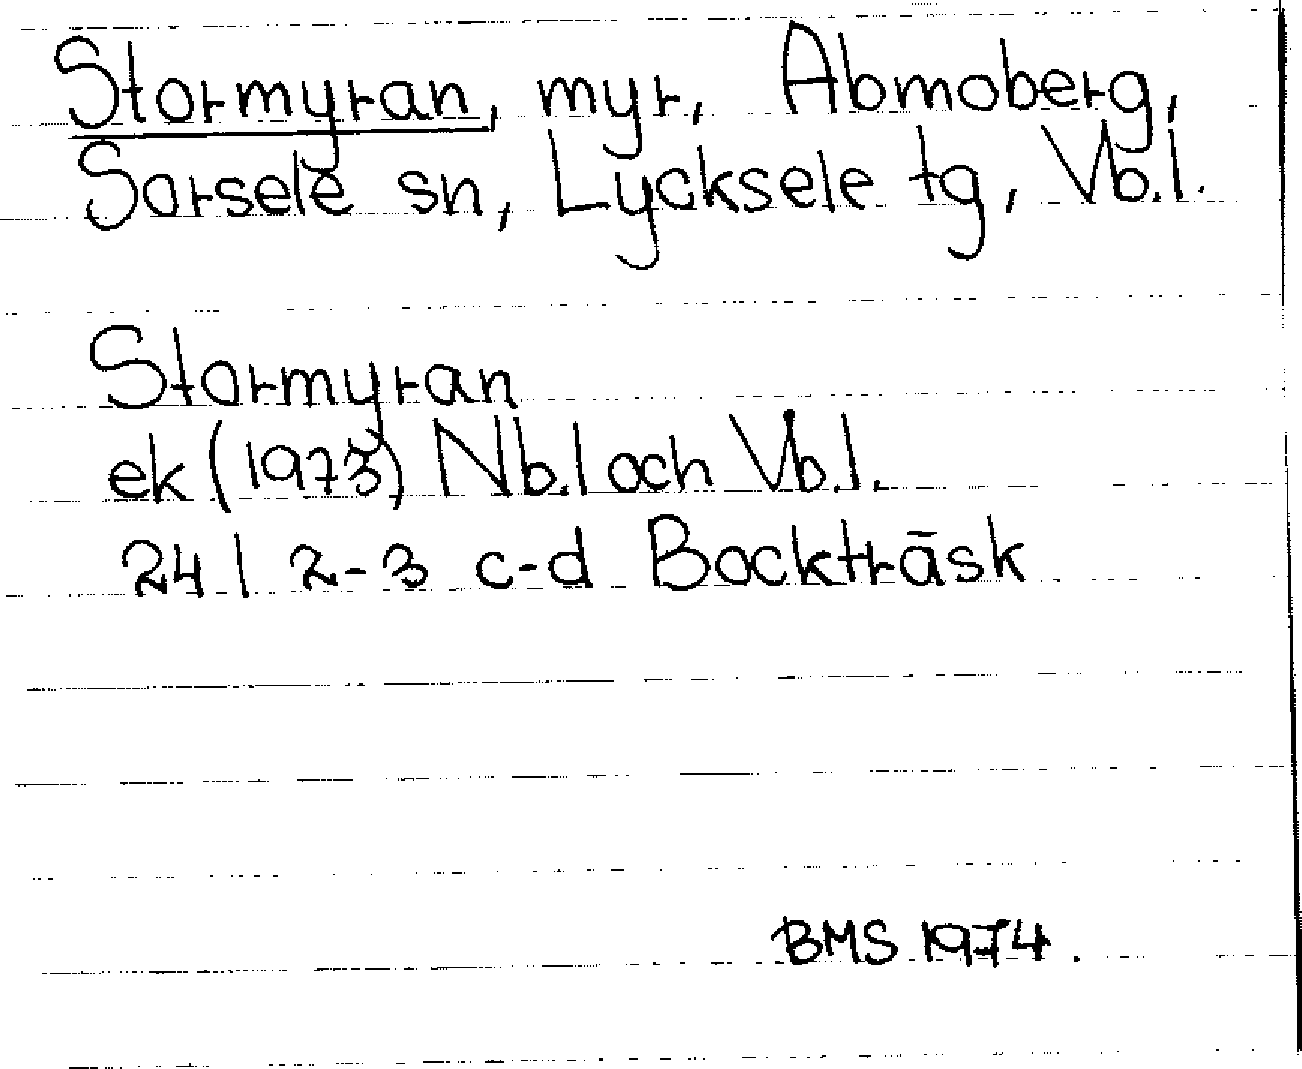 Stormyran, myr, Abmoberg,
Sorsele sn, Lycksele tg, Vb.l.
Stormyran
ek (1973) Nb.l och Vb.l.
24 I 2-3 c-d Bockträsk
BMS 1974.